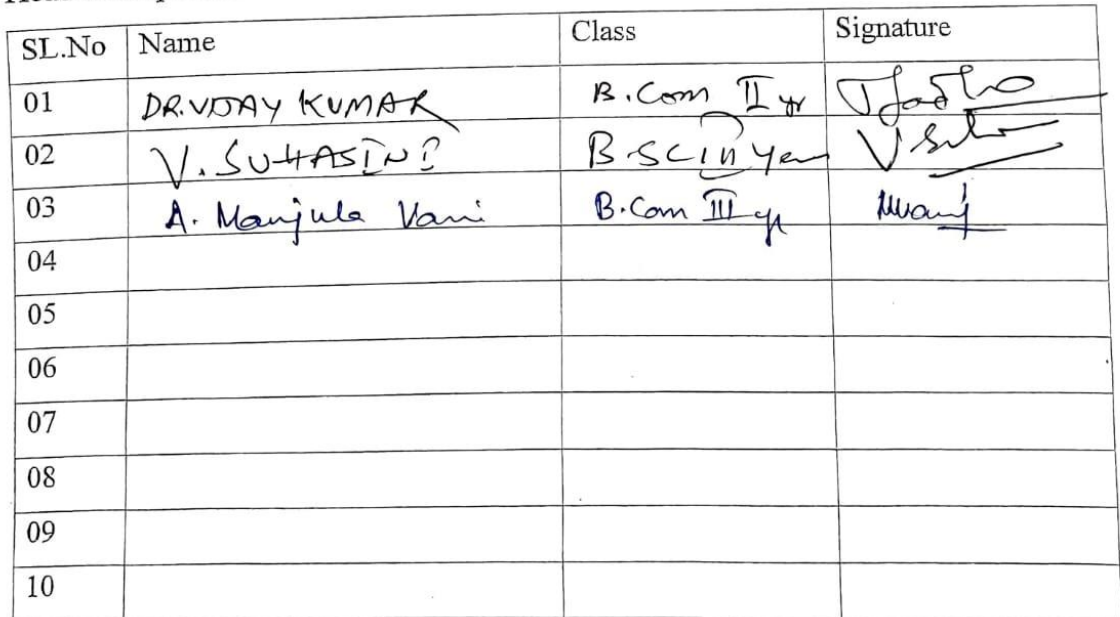 SL.No Name Class Signature
01 DR.VIJAY KUMAR B.Com II yr
02 V. SUHASINI B.SC III Year
03 A. Manjula Vani B.Com III yr
04
05
06
07
08
09
10